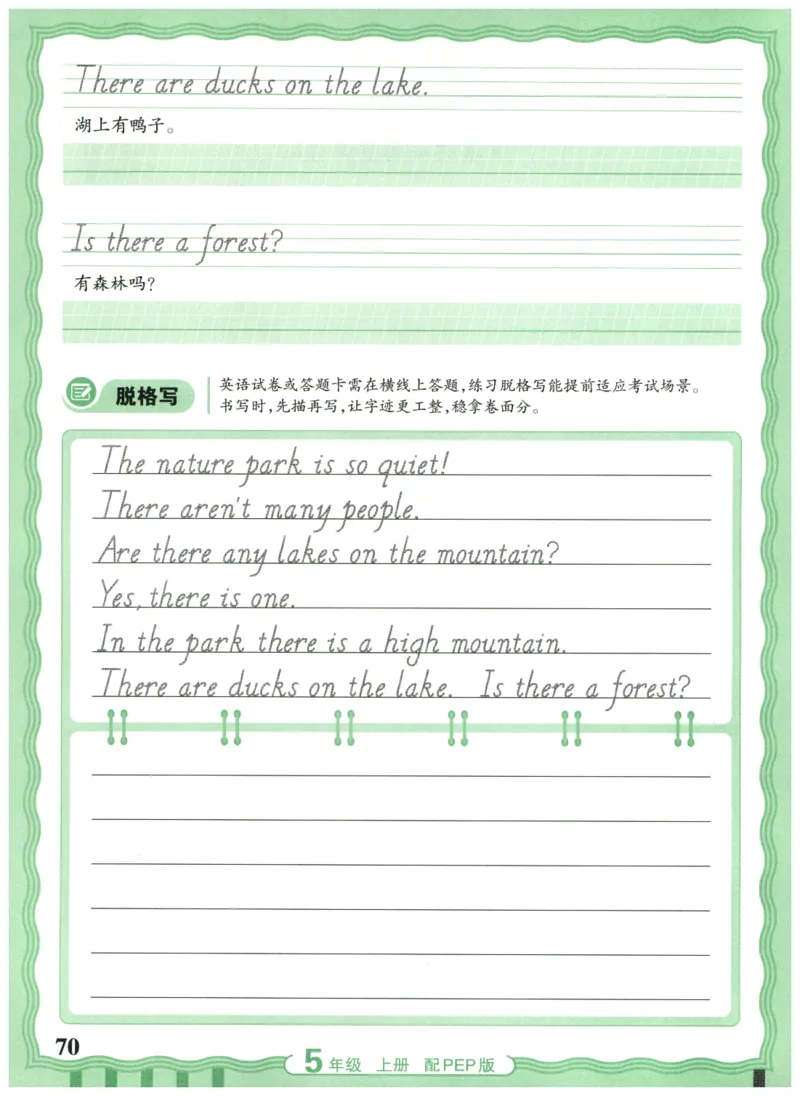 There are ducks on the lake.
湖上有鸭子。
Is there a forest?
有森林吗?
脱格写
英语试卷或答题卡需在横线上答题,练习脱格写能提前适应考试场景。
书写时,先描再写,让字迹更工整,稳拿卷面分。
The nature park is so quiet!
There aren't many people.
Are there any lakes on the mountain?
Yes, there is one.
In the park there is a high mountain.
There are ducks on the lake. Is there a forest?
70
5年级 上册 配PEP版